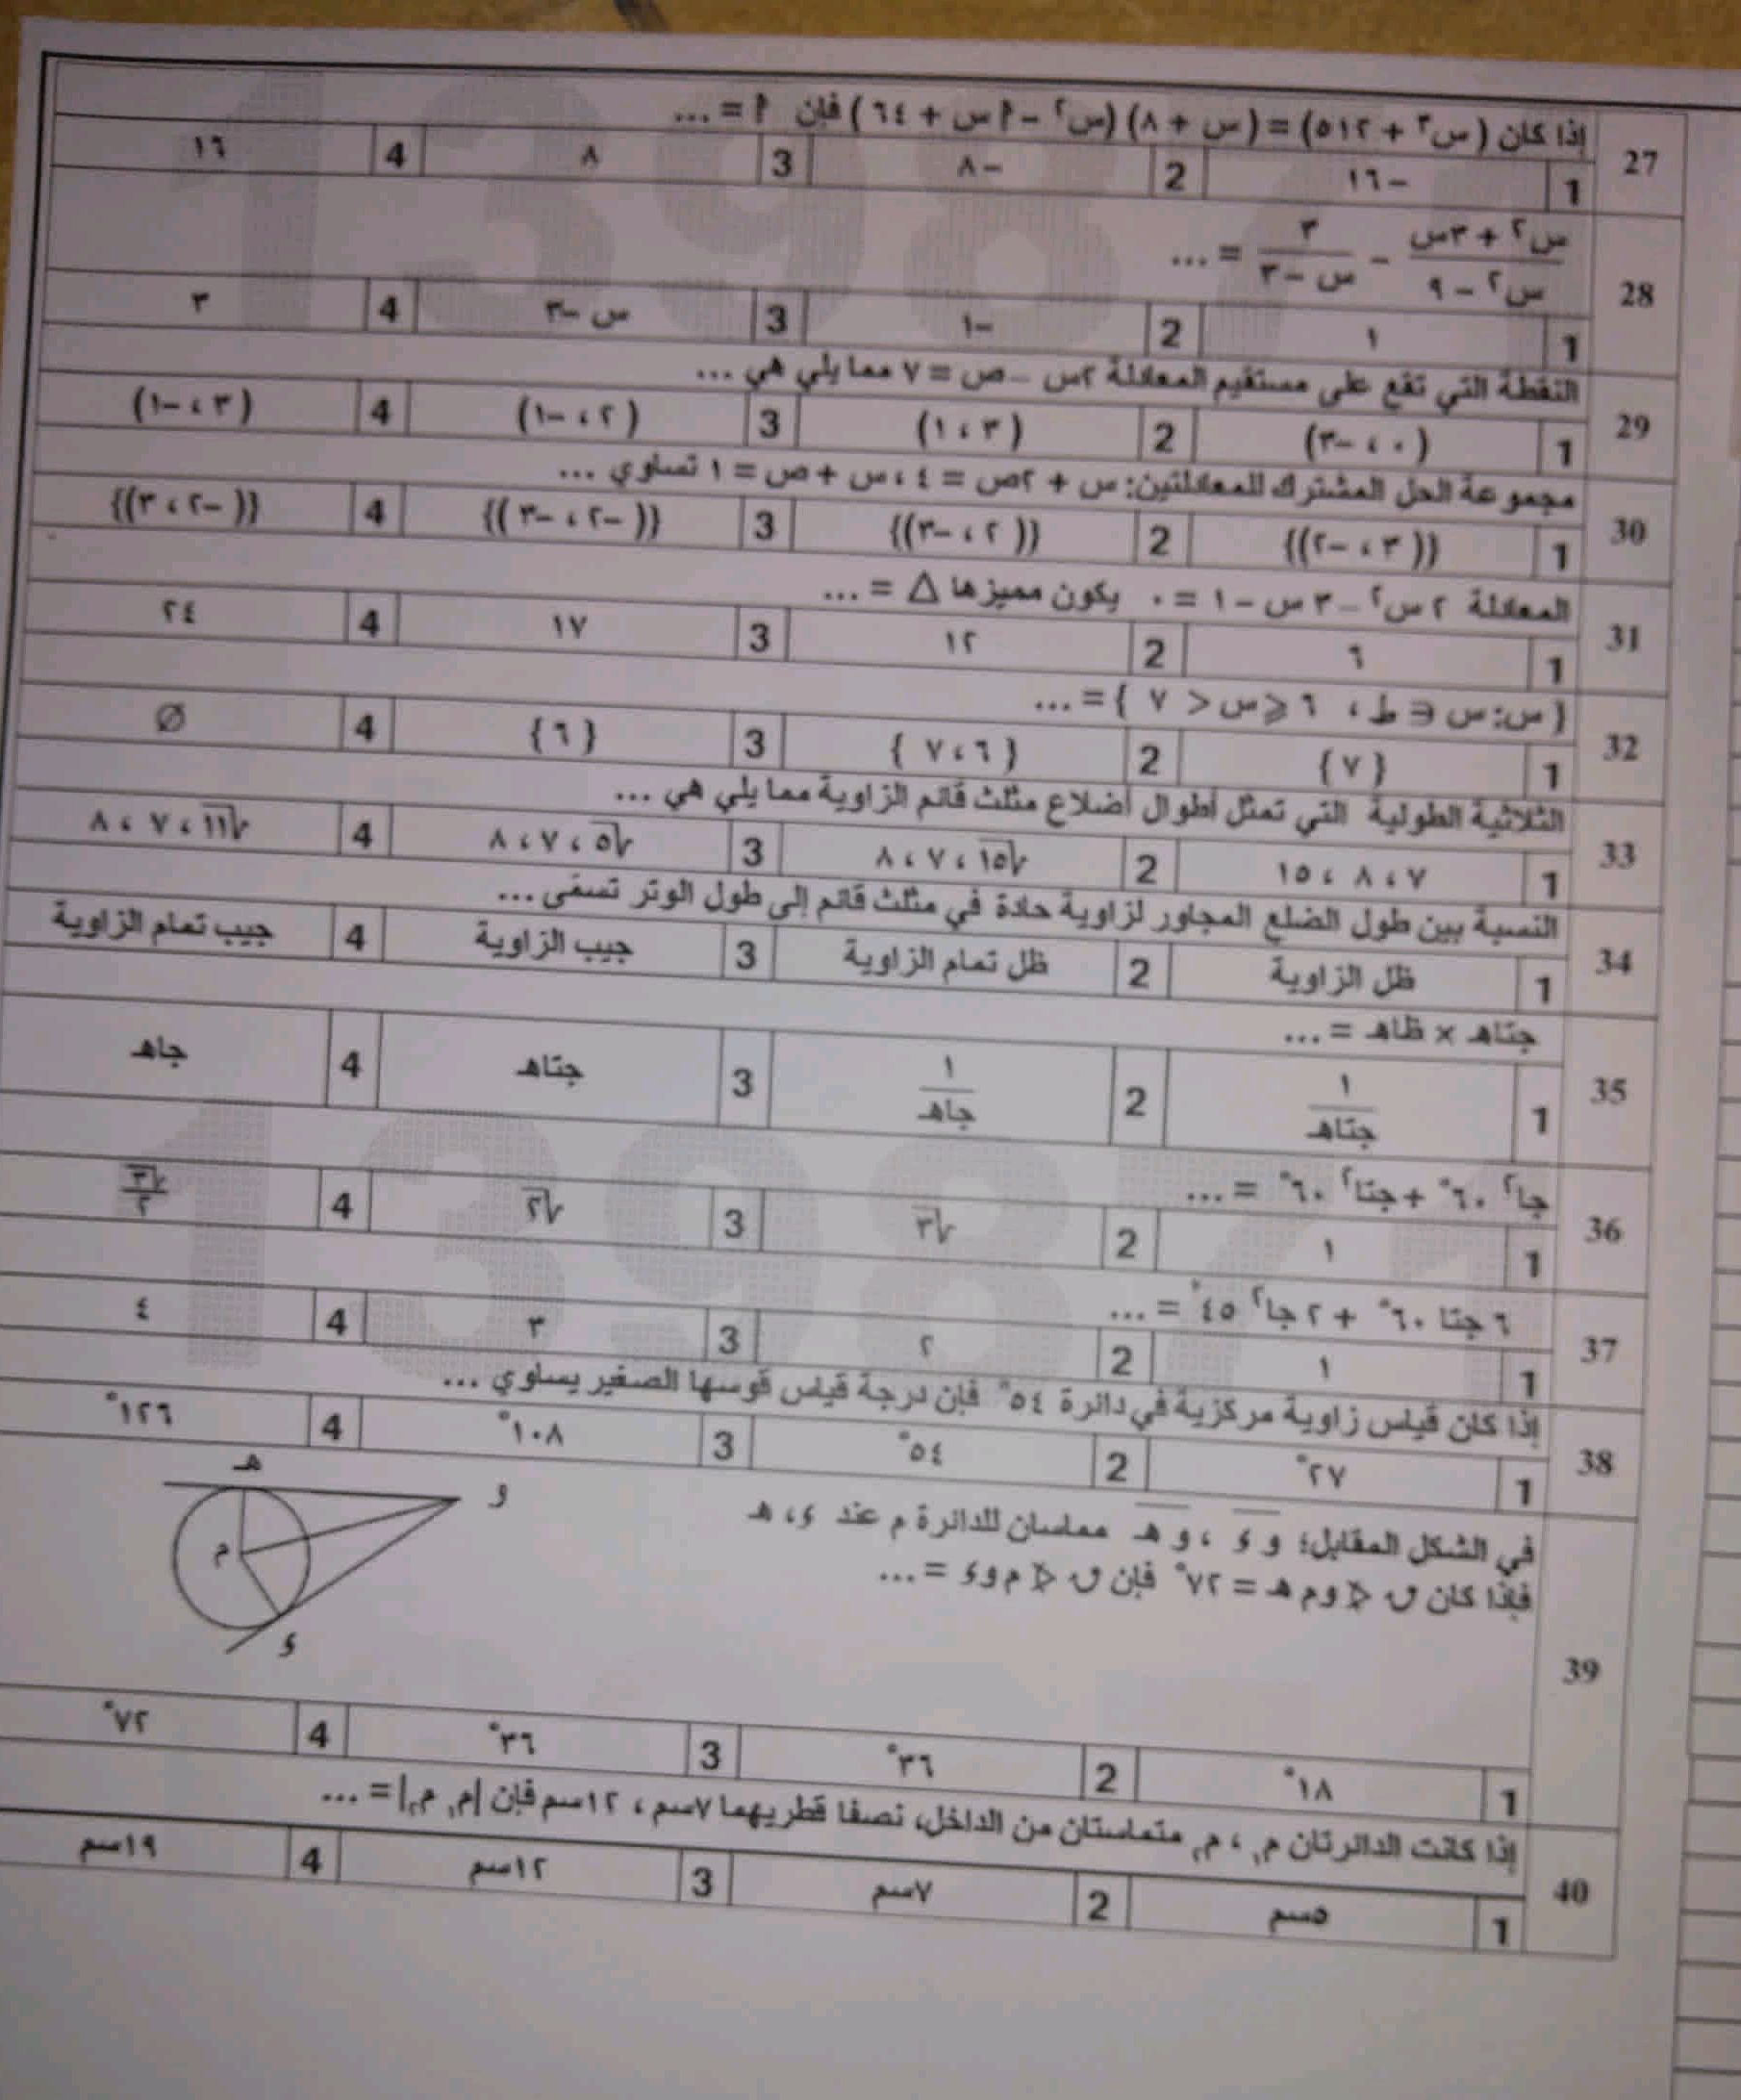 27 إذا كان (س٣ + ٥١٢) = (س + ٨) (س٢ – ٩ س + ٦٤) فإن ٩ = ...
1 –١٦ 2 –٨ 3 ٨ 4 ١٦
28 س٢ + ٣س / س٢ – ٩ – ٣ / س – ٣ = ...
1 ١ 2 –١ 3 س –٣ 4 ٣
29 النقطة التي تقع على مستقيم المعادلة ٢س – ص = ٧ مما يلي هي ...
1 (٠ ، –٣) 2 (٣ ، ١) 3 (٢ ، –١) 4 (٣ ، –١)
30 مجموعة الحل المشترك للمعادلتين: س + ٢ص = ٤ ، س + ص = ١ تساوي ...
1 {(٣ ، –٢)} 2 {(٢ ، –٣)} 3 {(–٢ ، –٣)} 4 {(–٢ ، ٣)}
31 المعادلة ٢ س٢ – ٣ س – ١ = ٠ يكون مميزها △ = ...
1 ٦ 2 ١٢ 3 ١٧ 4 ٢٤
32 {س:س ∈ ط ، ٦ ⩽ س < ٧ } = ...
1 {٧} 2 {٦ ، ٧} 3 {٦} 4 ∅
33 الثلاثية الطولية التي تمثل أطوال أضلاع مثلث قائم الزاوية مما يلي هي ...
1 ٧ ، ٨ ، ١٥ 2 √١٥ ، ٧ ، ٨ 3 √٥ ، ٧ ، ٨ 4 √١١ ، ٧ ، ٨
34 النسبة بين طول الضلع المجاور لزاوية حادة في مثلث قائم إلى طول الوتر تسمى ...
1 ظل الزاوية 2 ظل تمام الزاوية 3 جيب الزاوية 4 جيب تمام الزاوية
35 جتاهـ × ظاهـ = ...
1 ١ / جتاهـ 2 ١ / جاهـ 3 جتاهـ 4 جاهـ
36 جا٢ ٦٠° + جتا٢ ٦٠° = ...
1 ١ 2 √٣ 3 √٢ 4 √٣ / ٢
37 ٦ جتا ٦٠° + ٢ جا٢ ٤٥° = ...
1 ١ 2 ٢ 3 ٣ 4 ٤
38 إذا كان قياس زاوية مركزية في دائرة ٥٤° فإن درجة قياس قوسها الصغير يساوي ...
1 ٢٧° 2 ٥٤° 3 ١٠٨° 4 ١٢٦°
39 في الشكل المقابل؛ و ء ، و هـ مماسان للدائرة م عند ء ، هـ
فإذا كان ق ∢ و م هـ = ٧٢° فإن ق ∢ م و ء = ...
هـ
و
م
ء
1 ١٨° 2 ٣٦° 3 ٣٦° 4 ٧٢°
40 إذا كانت الدائرتان م١ ، م٢ متماستان من الداخل، نصفا قطريهما ٧سم ، ١٢سم فإن |م١ م٢| = ...
1 ٥سم 2 ٧سم 3 ١٢سم 4 ١٩سم